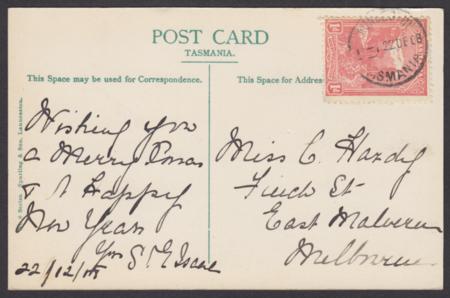 POST CARD
TASMANIA.
This Space may be used for Correspondence.
This Space for Address
Wishing you
a Merry Xmas
& A Happy
New Year
Yrs S.
22/12/
Miss C. Hardy
Finch St
East Malvern
Melbourne
1d 1d
22 DE 08
SMANIA
Series. Spurling & Son, Launceston.